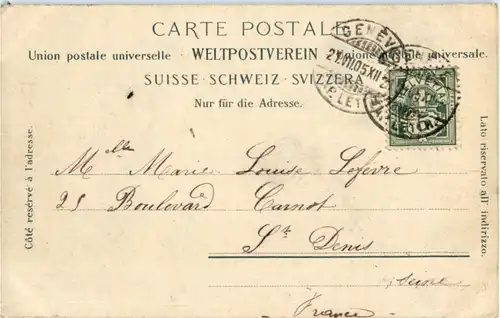 CARTE POSTALE
Union postale universelle · WELTPOSTVEREIN · Unione postale universale.
SUISSE · SCHWEIZ · SVIZZERA
Nur für die Adresse.
Côté reservé à l'adresse.
Lato riservato all' indirizzo.
GENÈVE
21.VII.05 XII
EXP. LETT.
Melle Marie Louise Lefevre
25 Boulevard Carnot
St Denis
Seine
France